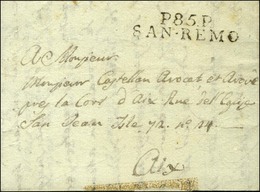 P85P
SAN-REMO
A Monsieur
Monsieur Castellan Avocat et Avoué
près la Cour d'Aix Rue
San Jean Isle 72. N° 14
Aix